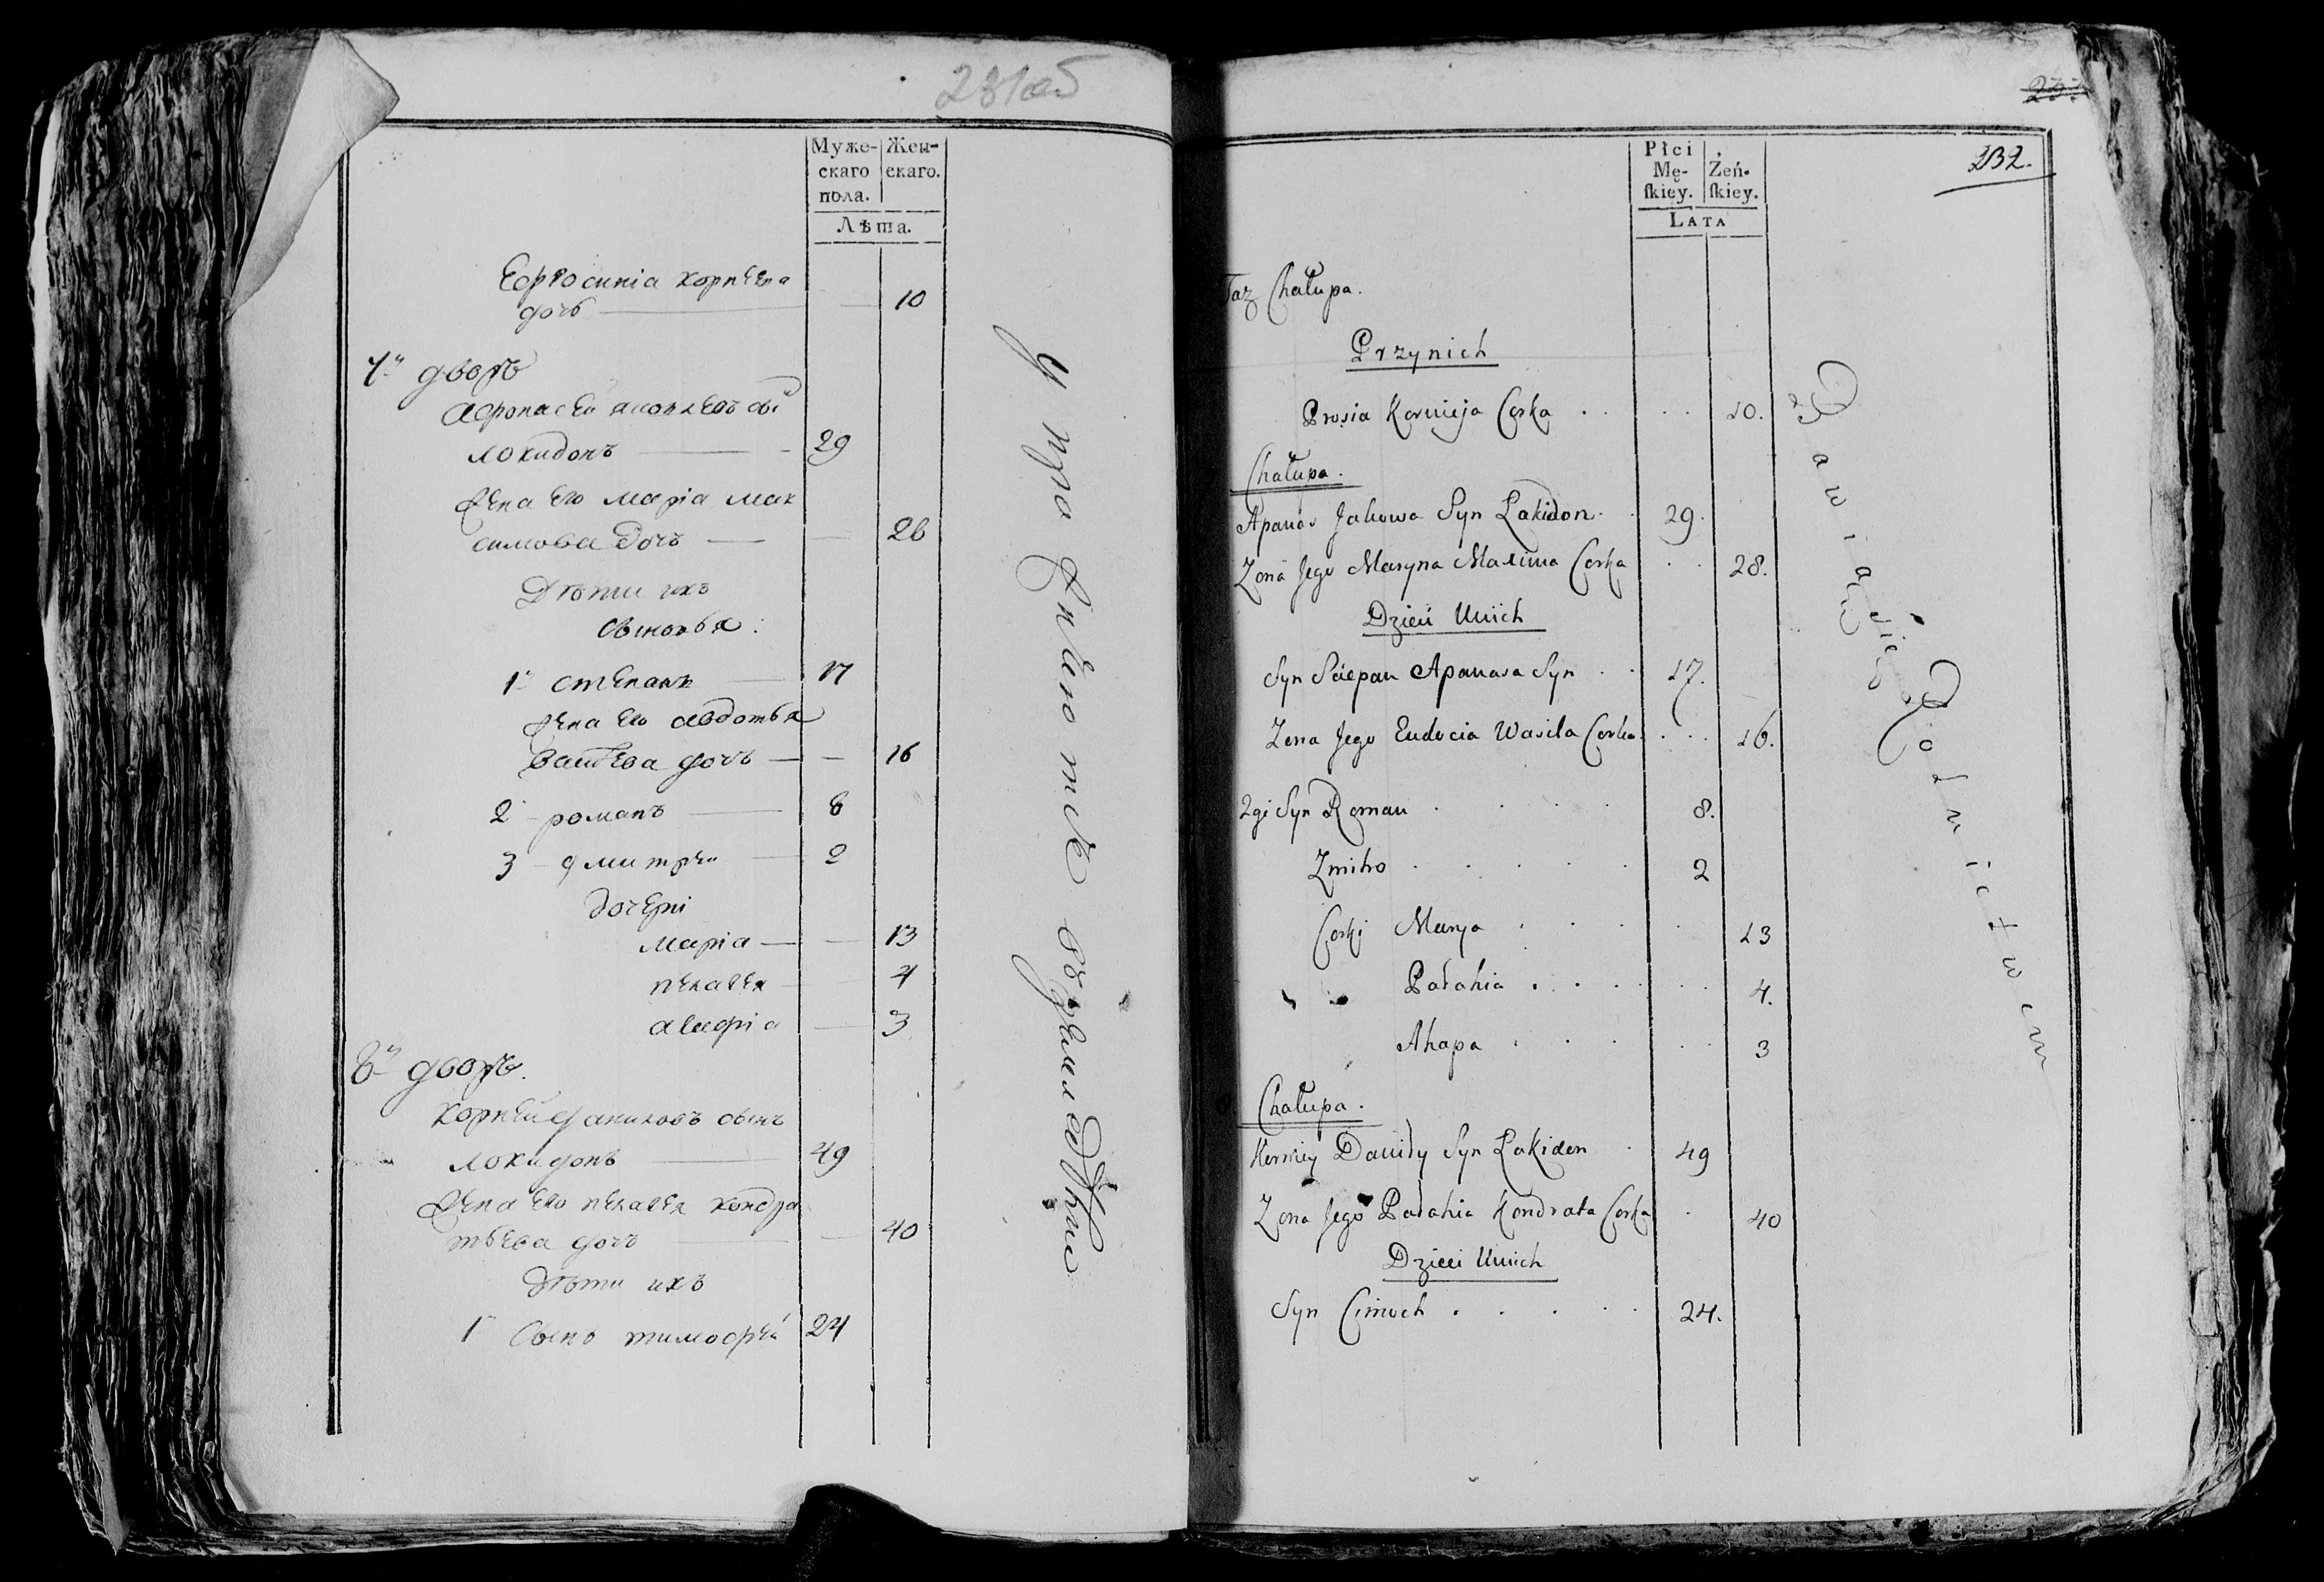 231об
Муже-
скаго
пола.
Жен-
скаго.
Лѣта.
Ефросинія корнѣева
дочь — — 10
7й дворъ
Афонасей яковлевъ сынъ
локидонъ — 29
жена Его марія мак
симова дочь — — 26
Дѣти ихъ
сыновья:
1й степанъ — 17
жена Его авдотья
васильева дочь — — 16
2 - романъ — 8
3 - дмитрей — 2
дочери
марія — — 13
пелагея — — 4
агафія — 3
8й дворъ.
корней даниловъ сынъ
локидонъ — 49
жена Его пелагея кондра
тьева дочь — — 40
дѣти ихъ
1й Сынъ тимофей 24
упражняются въ земледѣлie
232.
Płci
Mę-
ſkiey.
Żeń-
ſkiey.
LATA
Taz Chałupa.
Przynich
Prosia Kornieja Corka . . . . 10.
Chałupa.
Apanas Jakowa Syn Łakidon . . 29.
Zona Jego Maryna Maxima Corka . . 28.
Dzieci Unich
Syn Sciepan Apanasa Syn . . 17.
Zona Jego Eudocia Wasila Corka . . . 16.
2gi Syn Roman . . . . 8.
Zmitro . . . . . 2
Corki Marya . . . . 13
Pałahia . . . . . . 4.
Ahapa . . . . . . 3
Chałupa.
Korniey Daniły Syn Łakidon . 49
Zona Jego Pałahia Kondrata Corka . 40
Dzieci Unich
Syn Cimoch . . . . . 24.
Bawią się Rolnictwem